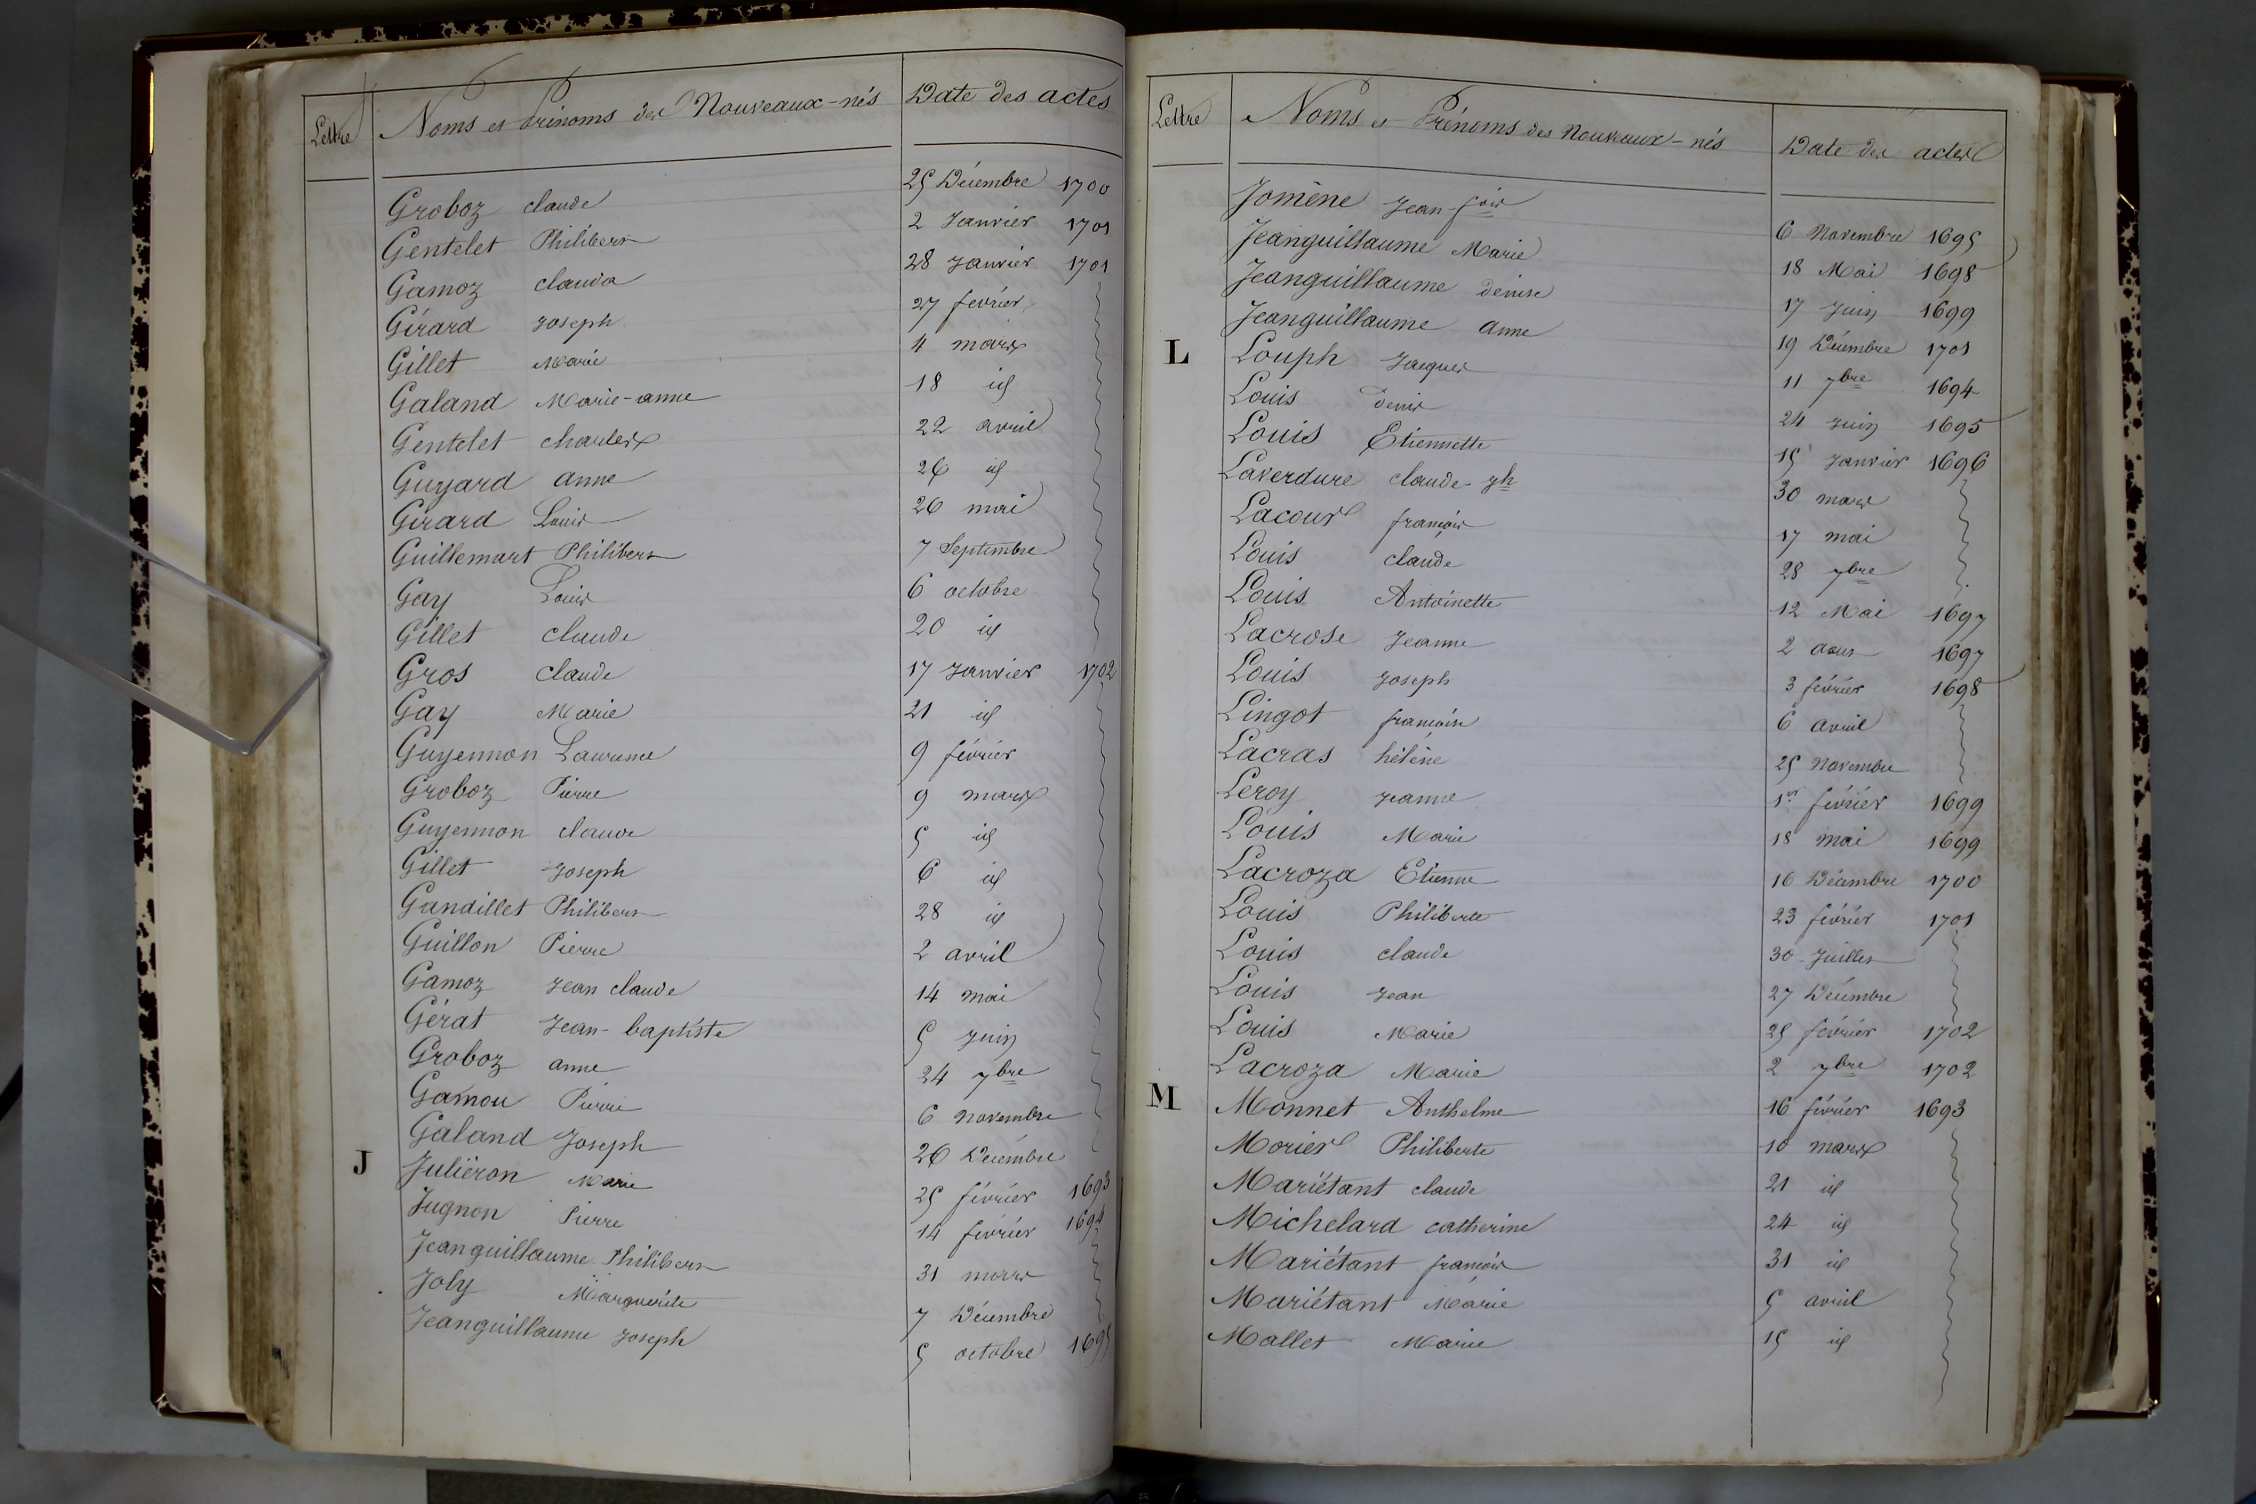 Lettre Noms et Prénoms des Nouveaux-nés Date des actes
Groboz claude 25 Décembre 1700
Gentelet Philibert 2 Janvier 1701
Gamoz clauda 28 Janvier 1701
Girard Joseph 27 février
Gillet Marie 4 mars
Galand Marie-anne 18 id
Gentelet charles 22 avril
Guyard anne 26 id
Girard Louis 26 mai
Guillemart Philibert 7 Septembre
Gay Louis 6 octobre
Gillet claude 20 id
Gros claude 17 Janvier 1702
Gay Marie 21 id
Guyennon Laurence 9 février
Groboz Pierre 9 mars
Guyennon claude 5 id
Gillet Joseph 6 id
Gandillet Philibert 28 id
Guillon Pierre 2 avril
Gamoz Jean claude 14 mai
Gérat Jean-baptiste 5 Juin
Groboz anne 24 7bre
Gamou Pierre 6 Novembre
Galand Joseph 26 Décembre
J Juliéron Marie 25 février 1693
Jugnon Pierre 14 février 1694
Jeanguillaume Philibert 31 mars
Joly Marguerite 7 Décembre
Jeanguillaume Joseph 5 octobre 1695
Lettre Noms et Prénoms des Nouveaux-nés Date des actes
Jomène Jean-fois 6 Novembre 1695
Jeanguillaume Marie 18 Mai 1698
Jeanguillaume denise 17 Juin 1699
Jeanguillaume anne 19 Décembre 1701
L Louph Jacques 11 7bre 1694
Louis denis 24 Juin 1695
Louis Etiennette 15 Janvier 1696
Laverdure claude-jh 30 mars
Lacour françois 17 mai
Louis claude 28 7bre
Louis Antoinette 12 Mai 1697
Lacrose Jeanne 2 aout 1697
Louis Joseph 3 février 1698
Lingot françoise 6 avril
Lacras hélène 25 Novembre
Leroy Jeanne 1er février 1699
Louis Marie 18 mai 1699
Lacroza Etienne 16 Décembre 1700
Louis Philiberte 23 février 1701
Louis claude 30 Juillet
Louis Jean 27 Décembre
Louis Marie 25 février 1702
Lacroza Marie 2 7bre 1702
M Monnet Anthelme 16 février 1693
Morier Philiberte 10 mars
Mariétant claude 21 id
Michelard catherine 24 id
Mariétant françois 31 id
Mariétant Marie 5 avril
Mallet Marie 15 id